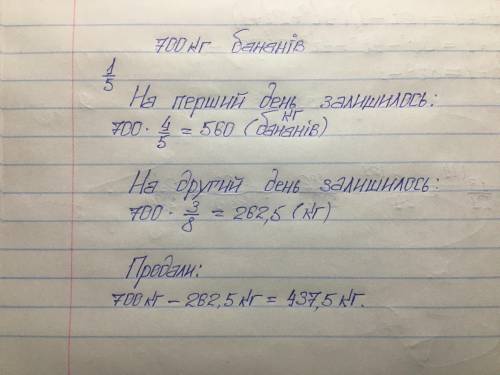 700 кг бананів
1/5
На перший день залишилось:
700 · 4/5 = 560 (кг бананів)
На другий день залишилось:
700 · 3/8 = 262,5 (кг)
Продали:
700кг – 262,5 кг = 437,5 кг.